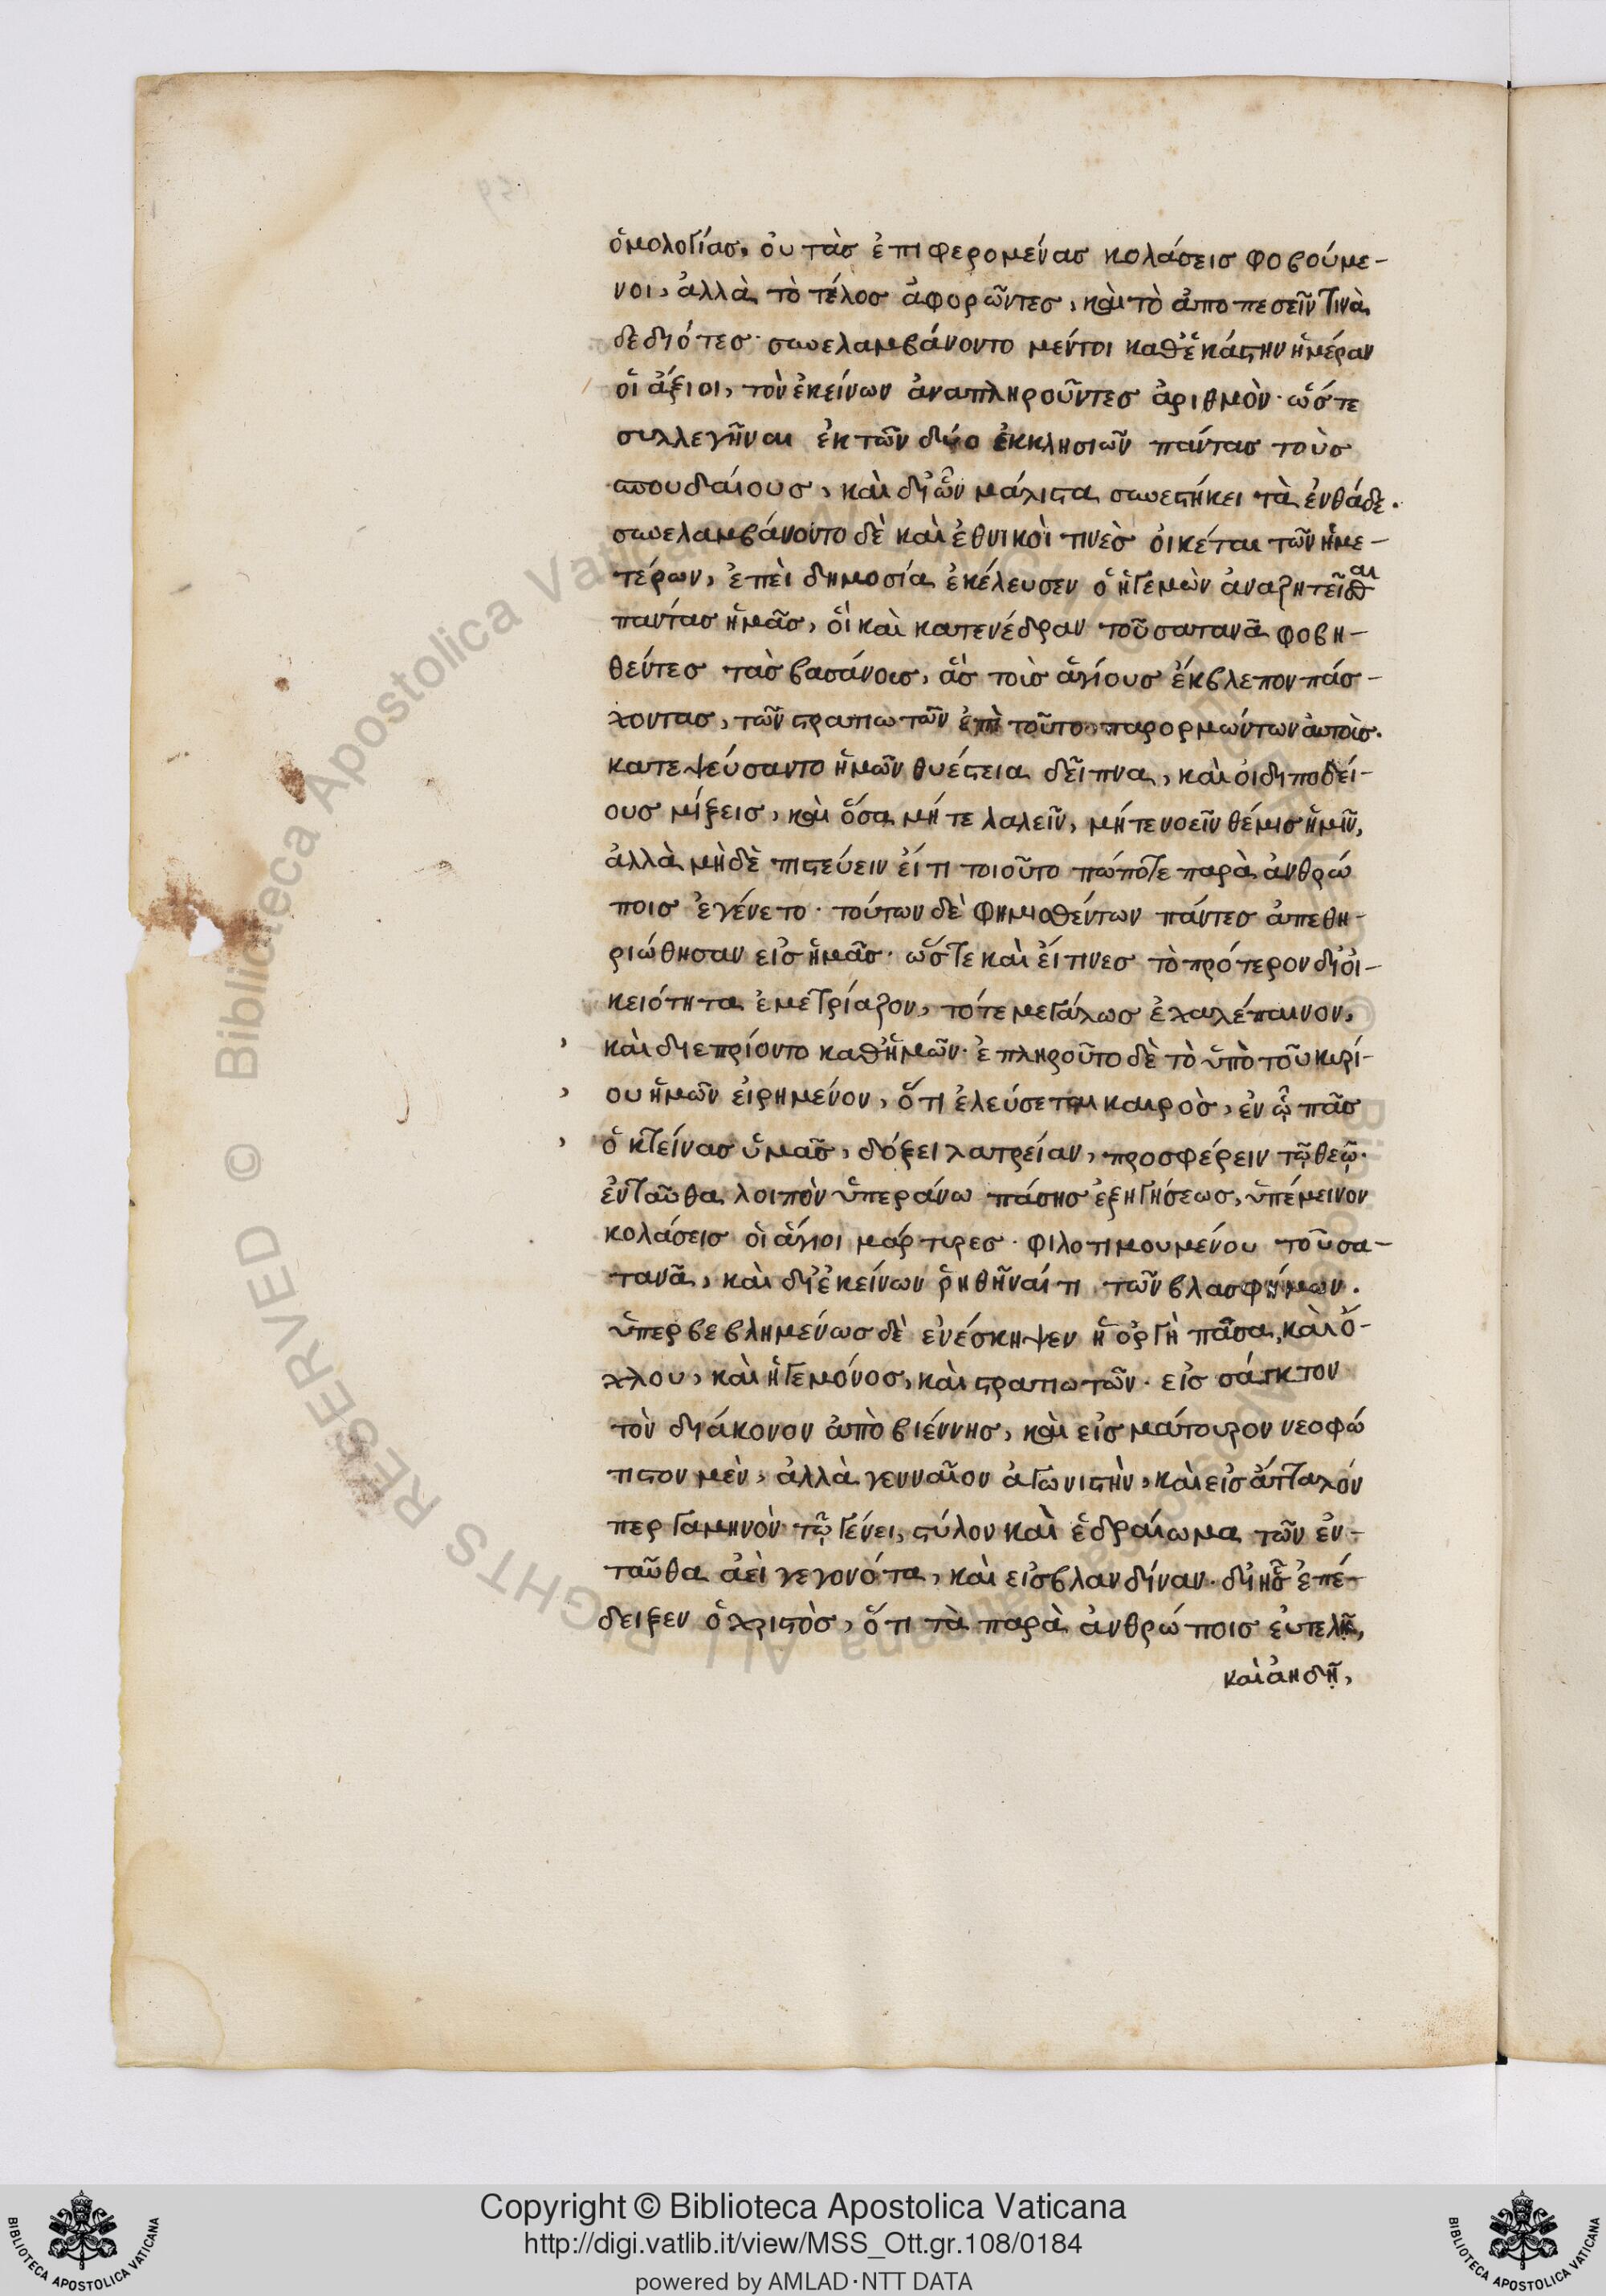 ὁμολογίας, οὐ τὰς ἐπιφερομένας κολάσεις φοβούμε-
νοι, ἀλλὰ τὸ τέλος ἀφορῶντες, καὶ τὸ ἀποπεσεῖν τινὰ
δεδιότες· συνελαμβάνοντο μέντοι καθ' ἑκάστην ἡμέραν
οἱ ἄξιοι, τὸν ἐκείνων ἀναπληροῦντες ἀριθμὸν· ὥστε
συλλεγῆναι ἐκ τῶν δύο ἐκκλησιῶν πάντας τοὺς
σπουδαίους, καὶ δι' ὧν μάλιστα συνεστήκει τὰ ἐνθάδε.
συνελαμβάνοντο δὲ καὶ ἐθνικοὶ τινὲς οἰκέται τῶν ἡμε-
τέρων, ἐπεὶ δημοσίᾳ ἐκέλευσεν ὁ ἡγεμὼν ἀναζητεῖσθαι
πάντας ἡμᾶς, οἳ καὶ κατενέδραν τοῦ σατανᾶ φοβη-
θέντες τὰς βασάνους, ἃς τοὺς ἁγίους ἔβλεπον πάσ-
χοντας, τῶν στρατιωτῶν ἐπὶ τοῦτο παρορμώντων αὐτοὺς.
κατεψεύσαντο ἡμῶν θυέστεια δεῖπνα, καὶ οἰδιποδεί-
ους μίξεις, καὶ ὅσα μήτε λαλεῖν, μήτε νοεῖν θέμις ἡμῖν,
ἀλλὰ μὴδὲ πιστεύειν εἴ τι τοιοῦτο πώποτε παρὰ ἀνθρώ
ποις ἐγένετο· τούτων δὲ φημισθέντων πάντες ἀπεθη-
ριώθησαν εἰς ἡμᾶς· ὥστε καὶ εἴ τινες τὸ πρότερον δι' οἰ-
κειότητα ἐμετρίαζον, τότε μεγάλως ἐχαλέπαινον,
καὶ διεπρίοντο καθ' ἡμῶν· ἐπληροῦτο δὲ τὸ ὑπὸ τοῦ κυρί-
ου ἡμῶν εἰρημένον, ὅτι ἐλεύσεται καιρὸς, ἐν ᾧ πᾶς
ὁ κτείνας ὑμᾶς, δόξει λατρείαν, προσφέρειν τῷ θεῷ·
ἐνταῦθα λοιπὸν ὑπεράνω πάσης ἐξηγήσεως, ὑπέμεινον
κολάσεις οἱ ἅγιοι μάρτυρες· φιλοτιμουμένου τοῦ σα-
τανᾶ, καὶ δι' ἐκείνων ῥηθῆναί τι τῶν βλασφήμων.
ὑπερβεβλημένως δὲ ἐνέσκηψεν ἡ ὀργὴ πᾶσα, καὶ ὄ-
χλου, καὶ ἡγεμόνος, καὶ στρατιωτῶν· εἰς σάγκτον
τὸν διάκονον ἀπὸ βιέννης, καὶ εἰς μάτουρον νεοφώ
τιστον μὲν, ἀλλὰ γενναῖον ἀγωνιστὴν, καὶ εἰς ἄτταλόν
περγαμηνὸν τῷ γένει, στύλον καὶ ἑδραίωμα τῶν ἐν-
ταῦθα ἀεὶ γεγονότα, καὶ εἰς βλανδίναν· δι' ἧς ἐπέ-
δειξεν ὁ χριστὸς, ὅτι τὰ παρὰ ἀνθρώποις εὐτελῆ,
καὶ ἀηδῆ,
Copyright © Biblioteca Apostolica Vaticana
http://digi.vatlib.it/view/MSS_Ott.gr.108/0184
powered by AMLAD·NTT DATA
BIBLIOTECA APOSTOLICA VATICANA
BIBLIOTECA APOSTOLICA VATICANA